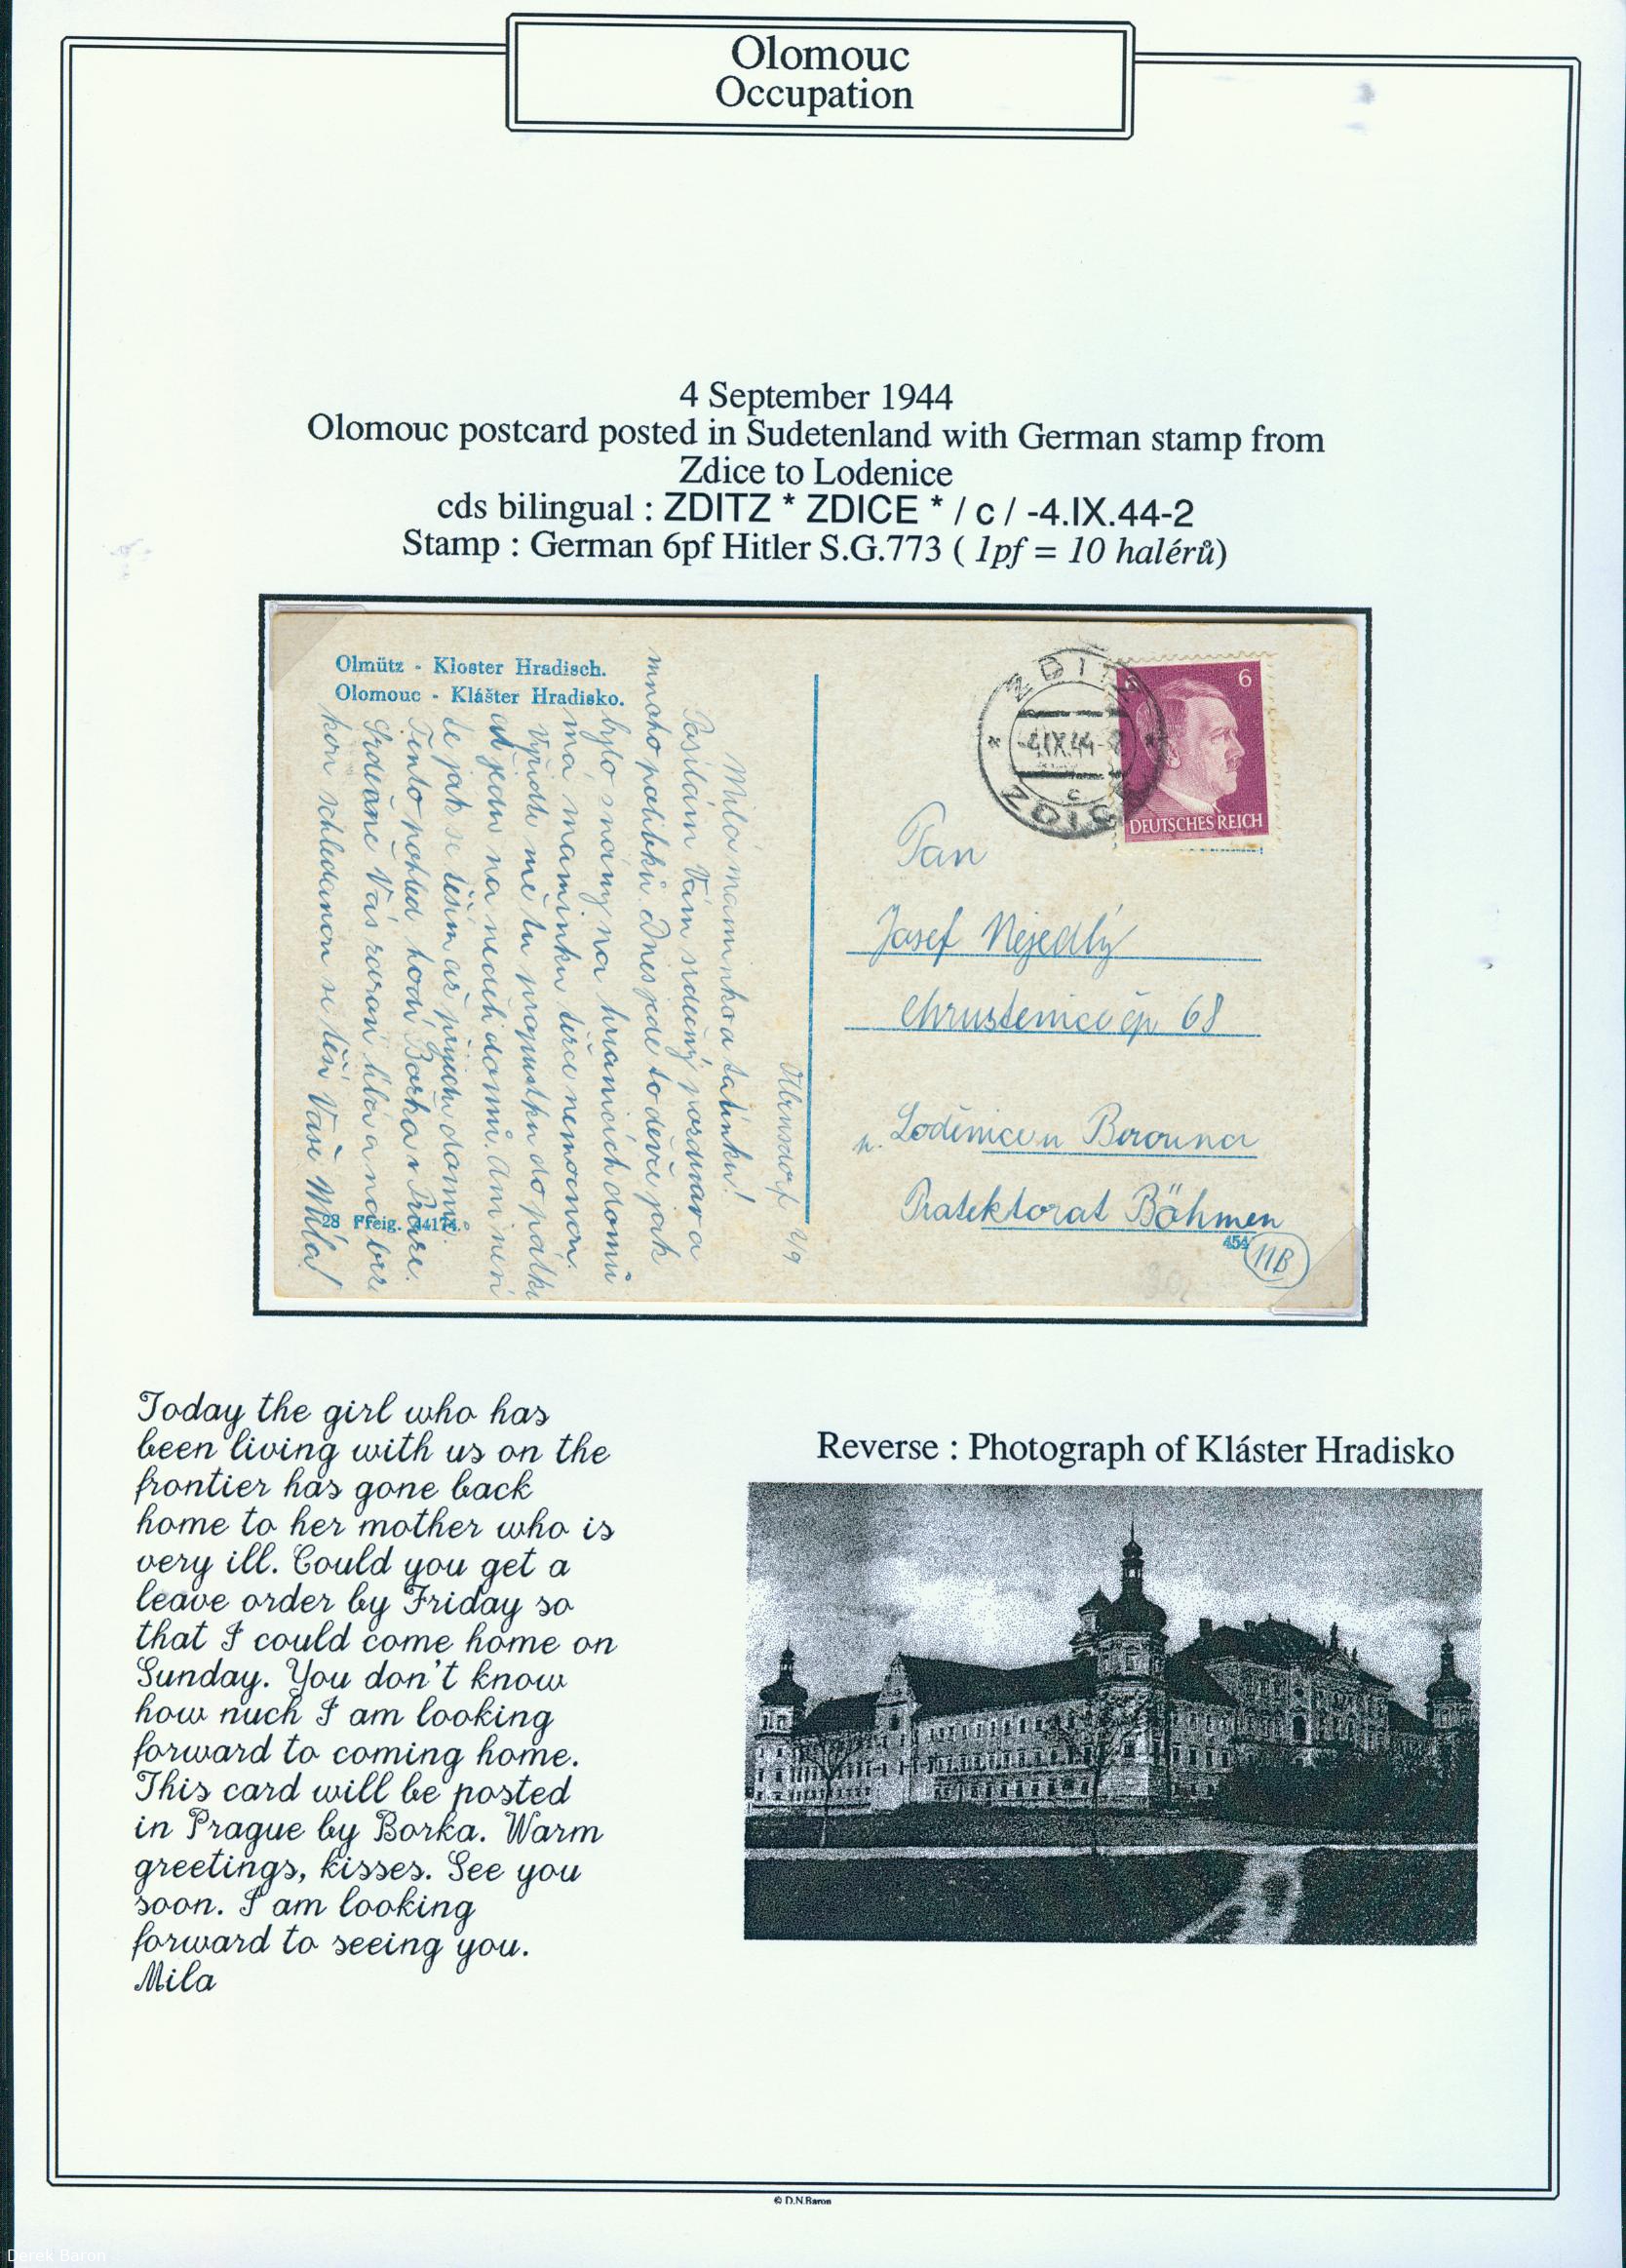 Olomouc
Occupation
4 September 1944
Olomouc postcard posted in Sudetenland with German stamp from
Zdice to Lodenice
cds bilingual : ZDITZ * ZDICE * / c / -4.IX.44-2
Stamp : German 6pf Hitler S.G.773 ( 1pf = 10 halérů)
Olmütz - Kloster Hradisch.
Olomouc - Klášter Hradisko.
ZDITZ
6
-4.IX.44-2
c
ZDICE
DEUTSCHES REICH
Pan
Josef Nejedlý
Chrustenice čp 68
p. Loděnice u Berouna
Protektorat Böhmen
454
11B
2/9
Milá maminko a tatínku!
Posílám Vám srdečný pozdrav a
mnoho polibků. Dnes jede to děvče jak
bylo s námi na hranicích domů
má maminku těžce nemocnou.
Vyřiďte mě tu propustku do pátku
ať jedu na neděli domů. Ani není
že jak se těším až přijedu domů.
Tento pohled hodí Bořka v Praze.
Srdečně Vás zdraví líbá a na brz
kou schledanou se těší Vaše Mila!
28 Pfeig. 44174.
Today the girl who has
been living with us on the
frontier has gone back
home to her mother who is
very ill. Could you get a
leave order by Friday so
that I could come home on
Sunday. You don't know
how nuch I am looking
forward to coming home.
This card will be posted
in Prague by Borka. Warm
greetings, kisses. See you
soon. I am looking
forward to seeing you.
Mila
Reverse : Photograph of Kláster Hradisko
© D.N.Baron
Derek Baron